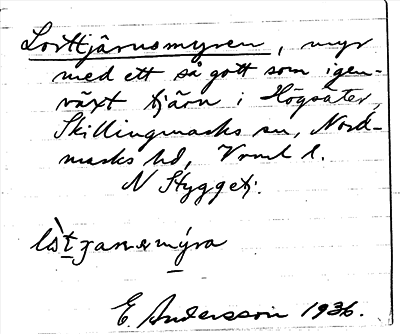 Lorttjärnsmyren, myr
med ett så gott som igen-
växt tjärn i Högsäter,
Skillingmarks sn, Nord-
marks hd, Vrml l.
N Styggetj.
E. Andersson 1936.